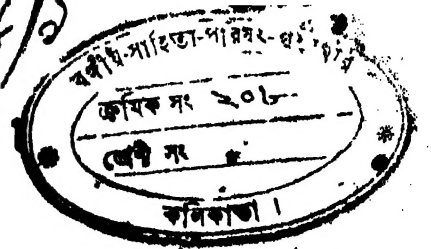 বঙ্গীয়-সাহিত্য-পরিষৎ-
ক্রমিক সং ২০৮
শ্রেণী সং
কলিকাতা।